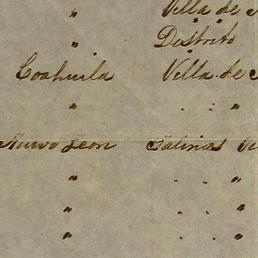 " Villa de
" Distrito
Coahuila Villa de
" . . "
Nuevo Leon Salinas
" . "
" . "
" . . "